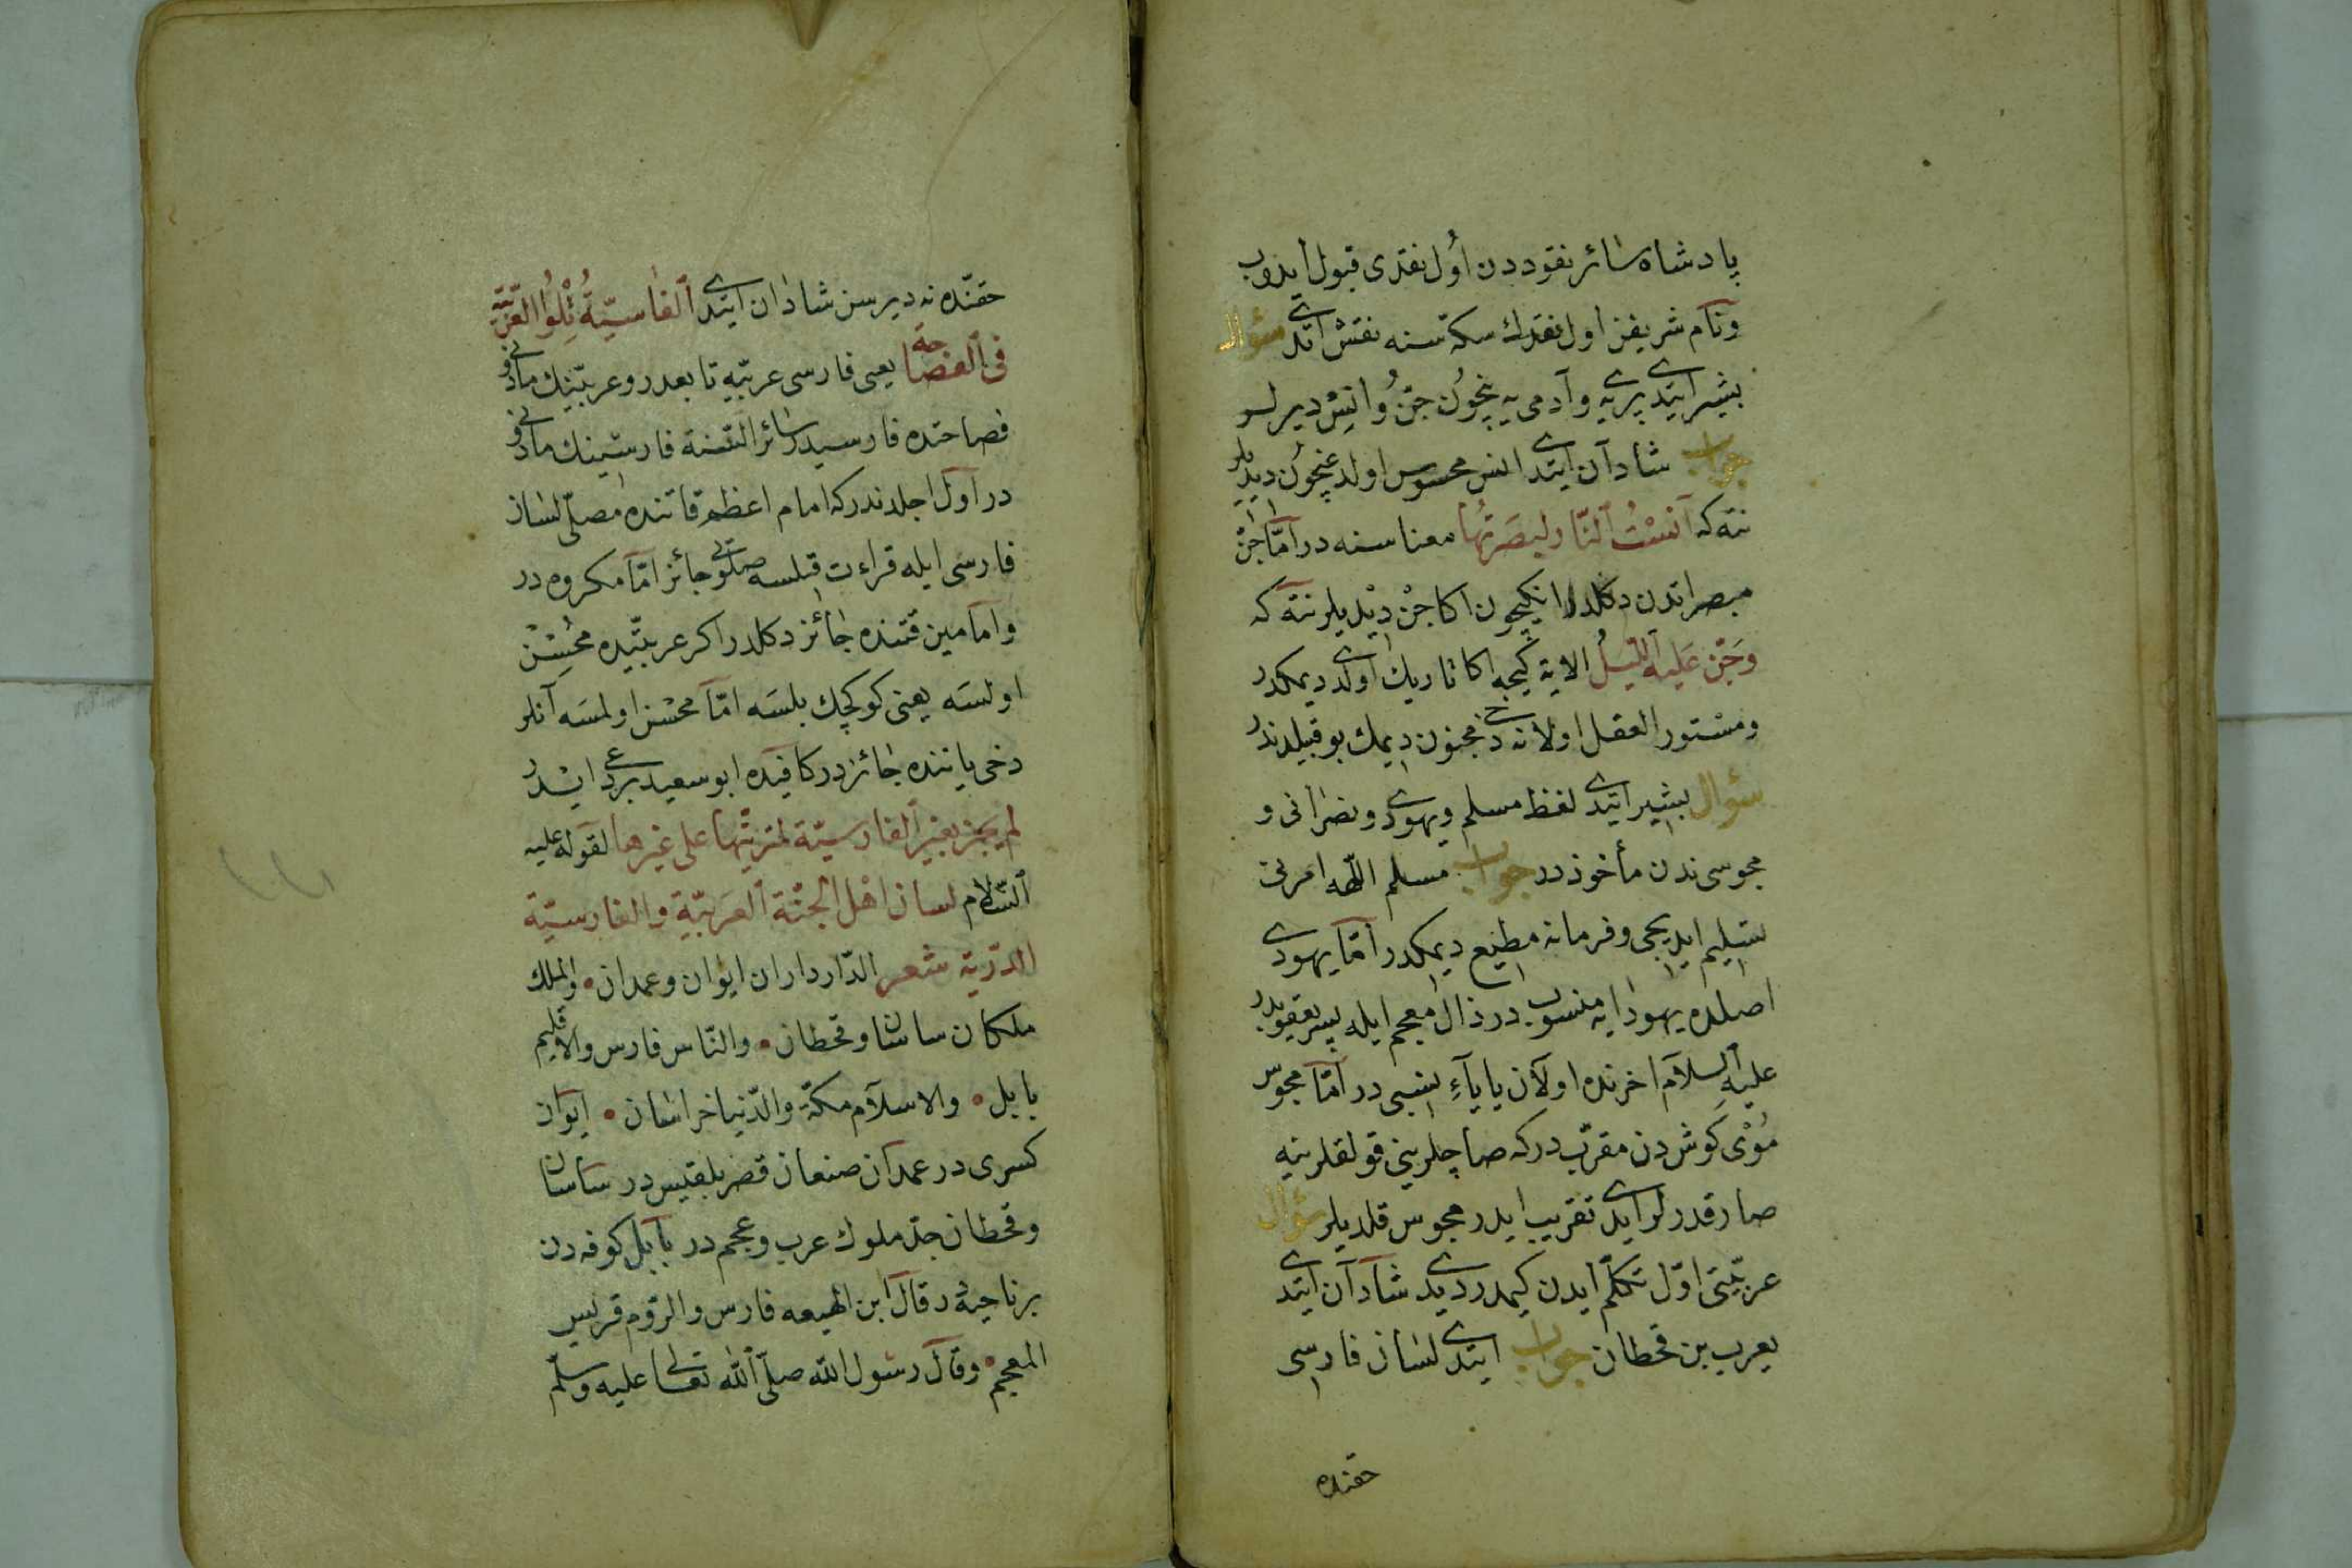 پادشاه سائر نقوددن اول نقدی قبول ایدوب
ونام شریفن اول نقدك سكه سنه نقش اتدی سؤال
بشیر ایتدی پری یه وآدمی یه نچون جن وانس دیرلر
جواب شادان ایتدی انس محسوس اولدغیچون دیدیلر
نته كه آنست النار لبصرتها معناسنه در اما جن
مبصراتدن دكلدر انكیچون اكا جن دیدیلر نته كه
وجن علیه اللیل الایة كیجه اكا تاریك اولدی دیمكدر
ومستور العقل اولانه دخی مجنون دیمك بو قبیلدندر
سؤال بشیر ایتدی لفظ مسلم ویهودی ونصرانی و
مجوسی ندن مأخوذدر جواب مسلم اللهه امرنی
تسلیم ایدیجی وفرمانه مطیع دیمكدر اما یهودی
اصلده یهودایه منسوب در ذال معجم ایله پسر یعقوبدر
علیه السلام اخرنده اولان یا یاء نسبی در اما مجوس
موی كوش دن مقرب دركه صاچلرینی قولقلرینه
صارقدرلر ایدی تقریب ایدر مجوس قلدیلر سؤال
عربیتی اول تكلم ایدن كیمدر دیدی شادان ایتدی
یعرب بن قحطان جواب ایتدی لسان فارسی
حقنده
حقنده نه دیرسن شادان ایتدی الفارسیة تلو العربیة
فی الفصاحة یعنی فارسی عربیه تابعدر وعربینك مادونی
فصاحتده فارسیدر سائر السنة فارسینك مادونی
در اول اجلدندركه امام اعظم قاتنده مصلی لسان
فارسی ایله قراءت قیلسه صلوتی جائز اما مكروه در
واما مین قتنده جائز دكلدر اكر عربیده محسن
اولسه یعنی كوكچك بلسه اما محسن اولمسه آنلر
دخی یاننده جائزدر كافیده ابو سعید بردعی ایدر
لم یجز بغیر الفارسیة لمزیتها علی غیرها لقوله علیه
السلام لسان اهل الجنة العربیة والفارسیة
الدریة شعر الدار داران ایوان وعمدان والملك
ملكان ساسان وقحطان والناس فارس والاقلیم
بابل والاسلام مكة والدنیا خراسان ایوان
كسری در عمدان صنعان قصر بلقیس در ساسان
وقحطان جد ملوك عرب وعجم در بابل كوفه دن
بر ناحیه در قال ابن الهیعه فارس والروم قریش
المعجم وقال رسول الله صلی الله تعالی علیه وسلم